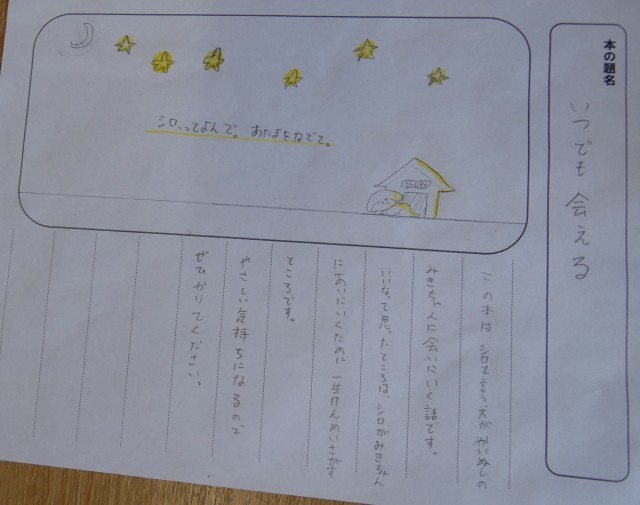 本の題名
いつでも会える
シロ、ってよんで。あたまをなでて。
SHIRO
この本は、シロと言う、犬がかいぬしの
みきちゃんに会いにいく話です。
いいなって思ったところは、シロがみきちゃん
にあいにいくために一生けんめいさがす
ところです。
やさしい気持ちになるので
ぜひかりてください。